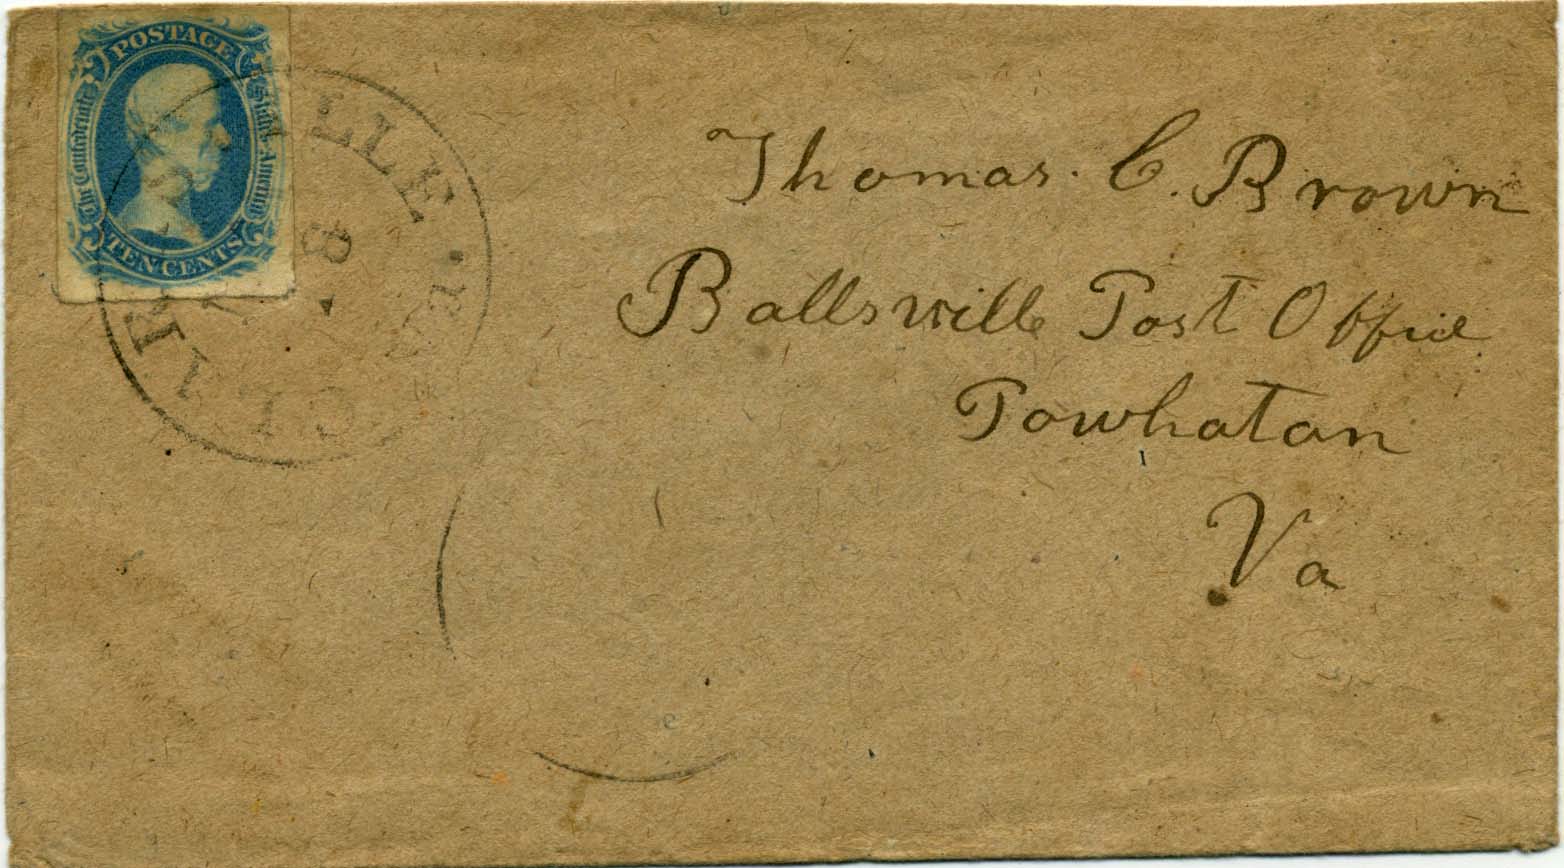 POSTAGE
The Confederate States of America
TEN CENTS
CLARKSVILLE Va.
8
Thomas. C. Brown
Ballsville Post Office
Powhatan
Va